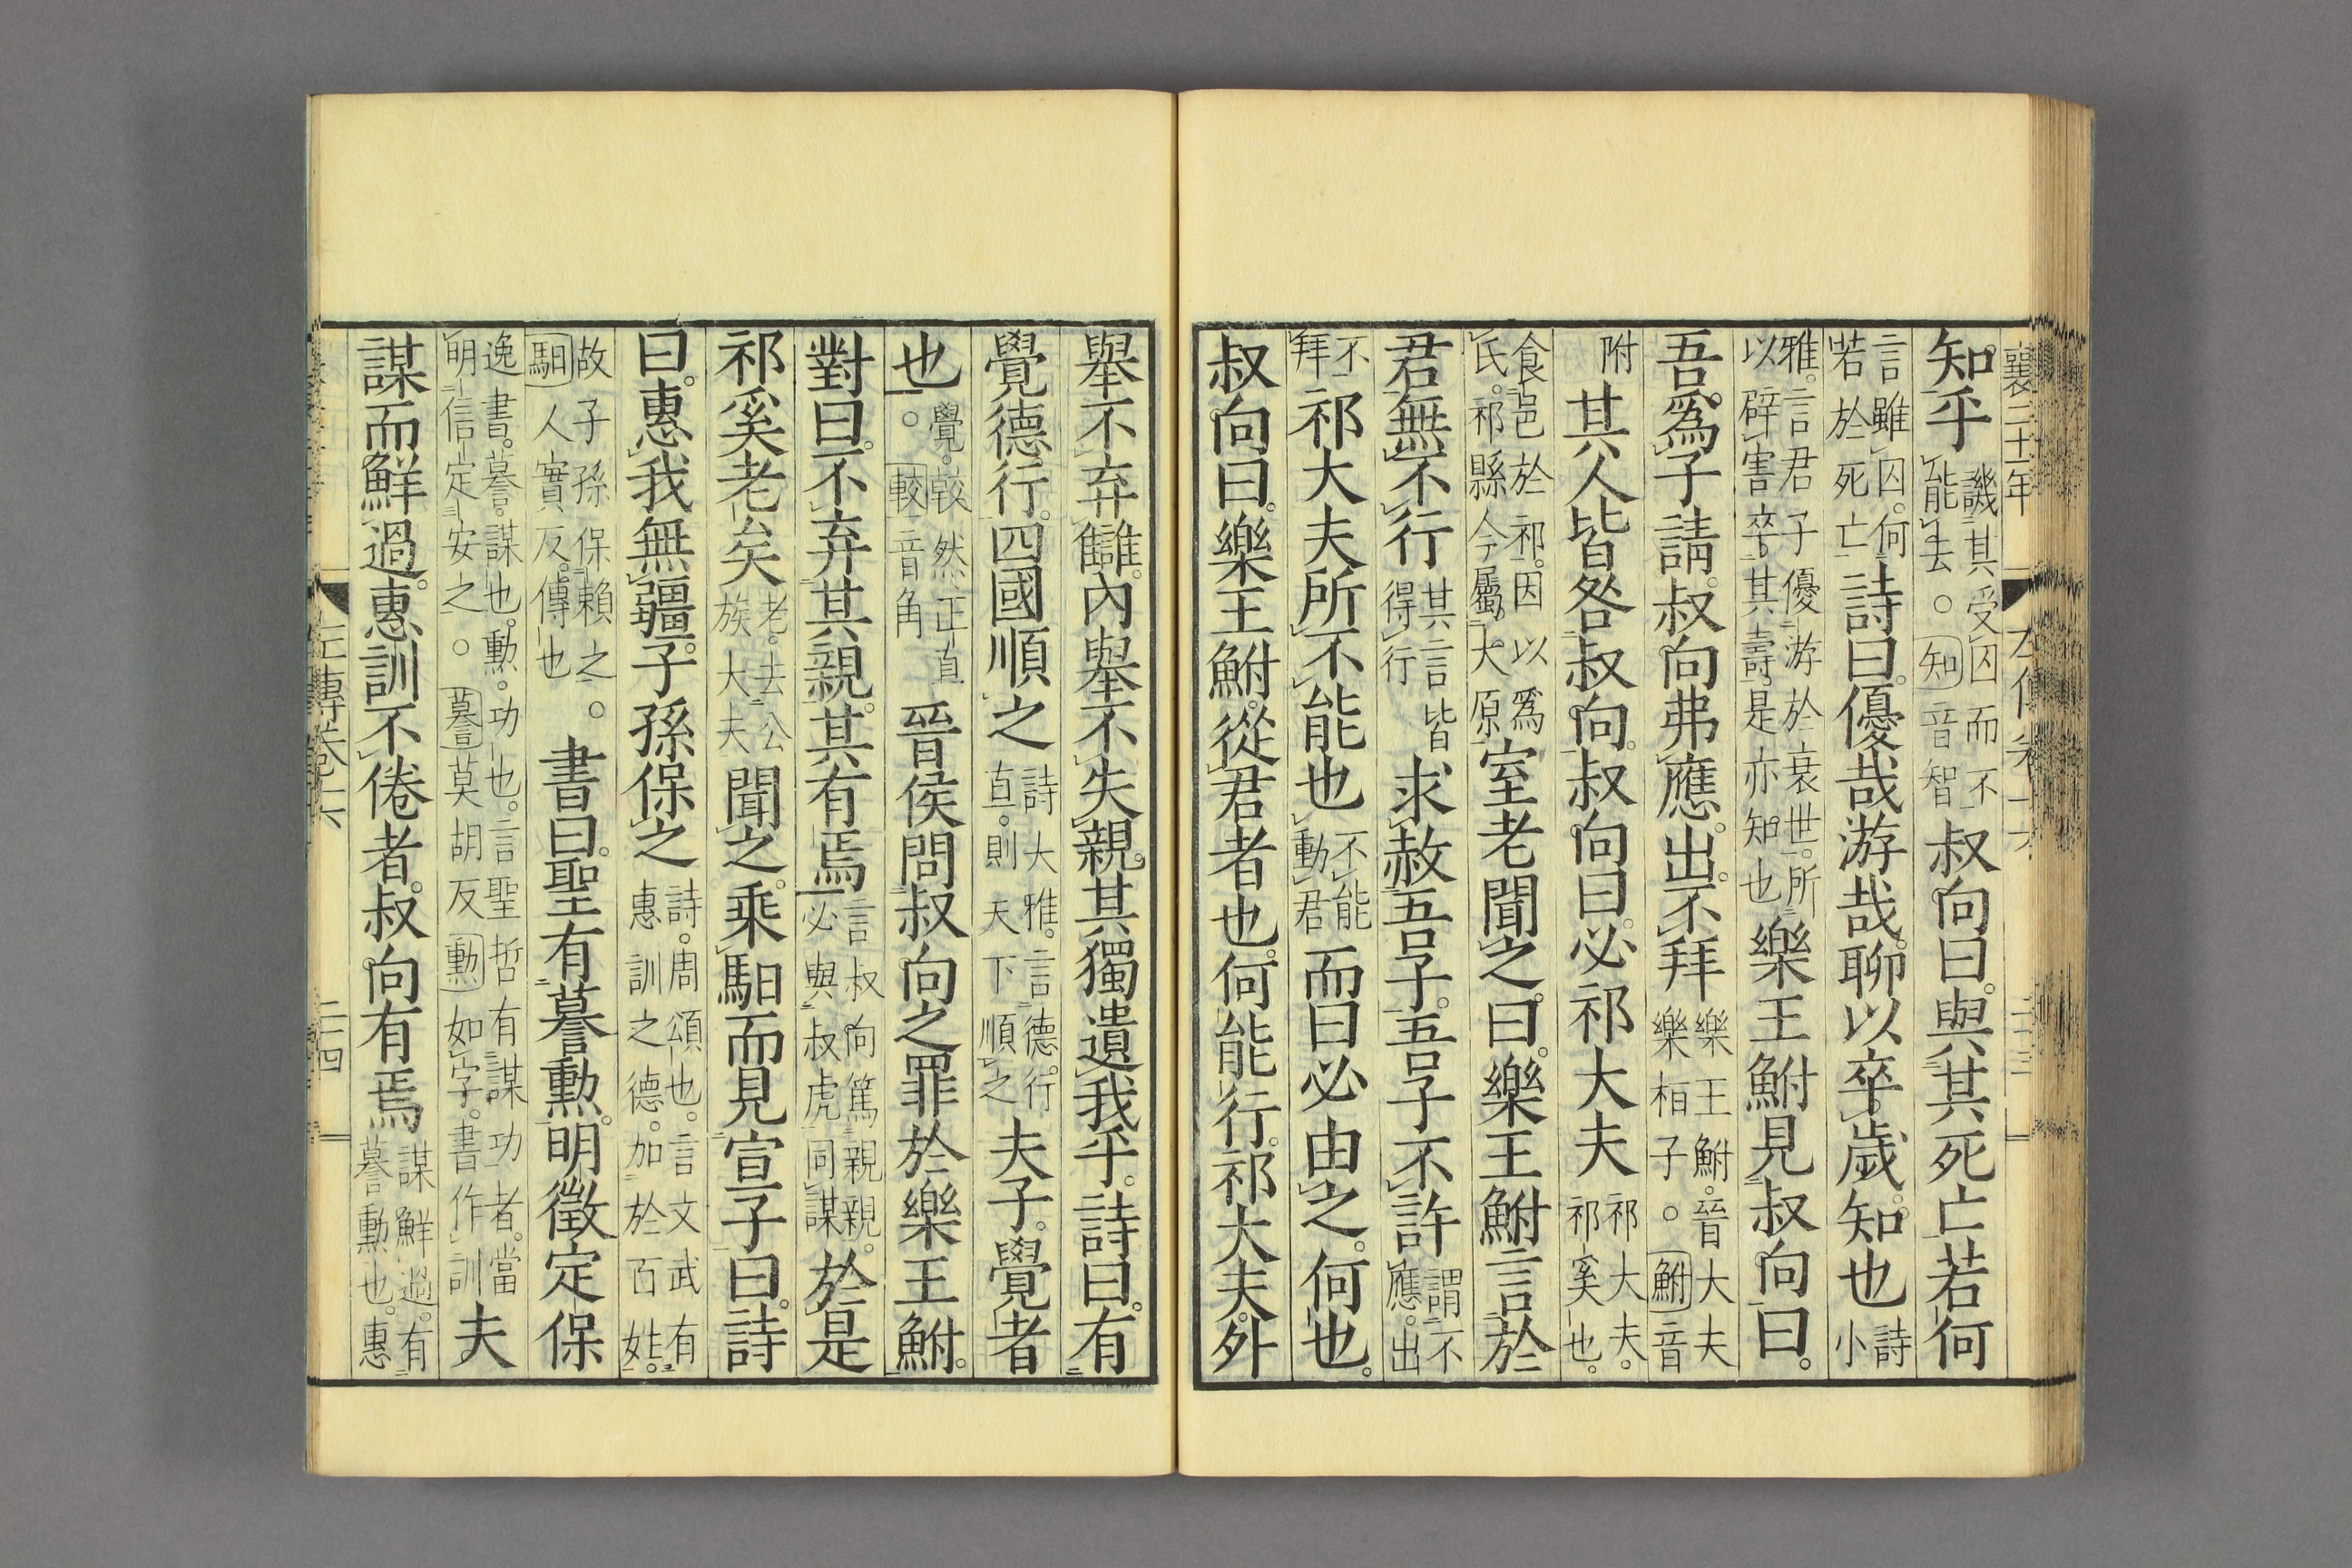 襄二十一年
知乎譏其受囚而不能去。知音智叔向曰。與其死亡若何
言雖囚。何若於死亡詩曰。優哉游哉。聊以卒歲。知也詩小
雅。言君子優游於衰世。所以辟害卒其壽。是亦知也樂王鮒見叔向曰。
吾爲子請。叔向弗應。出。不拜樂王鮒。晉大夫樂桓子。鮒音
附其人皆咎叔向。叔向曰。必祁大夫祁大夫。祁奚也。
食邑於祁。因以爲氏。祁縣今屬大原室老聞之。曰。樂王鮒言於
君無不行其言皆得行求赦吾子。吾子不許謂不應。出
不拜祁大夫所不能也不能動君而曰必由之。何也。
叔向曰。樂王鮒。從君者也。何能行。祁大夫。外
舉不弃讎。內舉不失親。其獨遺我乎。詩曰。有
覺德行。四國順之詩大雅。言德行直。則天下順之夫子。覺者
也。覺。較然正直。較音角晉侯問叔向之罪於樂王鮒。
對曰。不弃其親。其有焉言叔向篤親親。必與叔虎同謀於是
祁奚老矣老。去公族大夫聞之。乘馹而見宣子曰。詩
曰。惠我無疆。子孫保之詩。周頌也。言文武有惠訓之德。加於百姓。
故子孫保賴之。馹人實反。傳也書曰。聖有謩勳。明徵定保
逸書。謩。謀也。勳。功也。言聖哲有謀功者。當明信定安之。謩莫胡反勳如字。書作訓夫
謀而鮮過。惠訓不倦者。叔向有焉謀鮮過。有謩勳也。惠
左傳卷十六 二十四